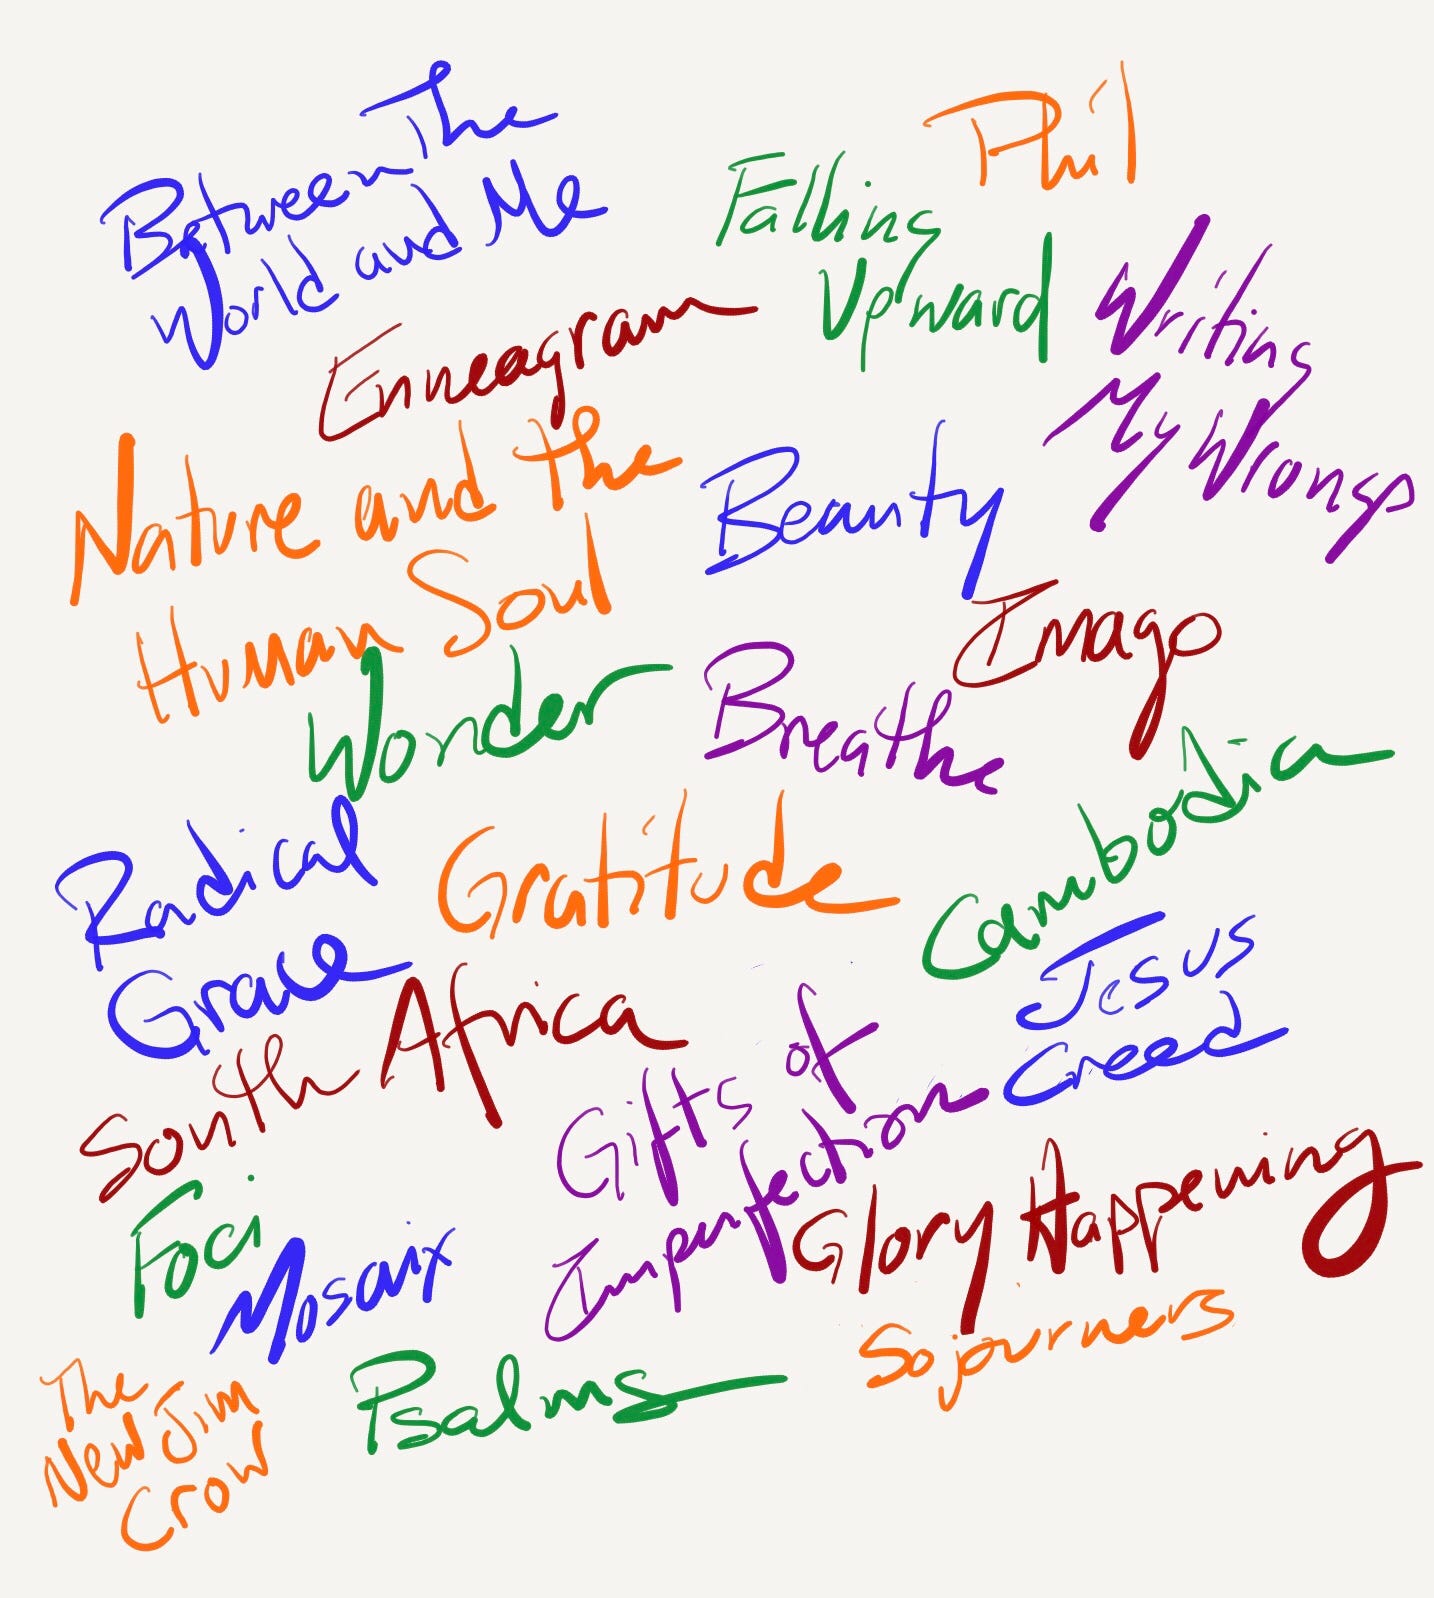 Between The
World and Me
Phil
Falling
Upward
Writing
My Wrongs
Enneagram
Nature and the
Human Soul
Beauty
Imago
Wonder
Breathe
Cambodia
Radical
Grace
Gratitude
Jesus
Creed
South Africa
Gifts of
Imperfection
Glory Happening
Foci
Mosaix
Sojourners
Psalms
The
New Jim
Crow